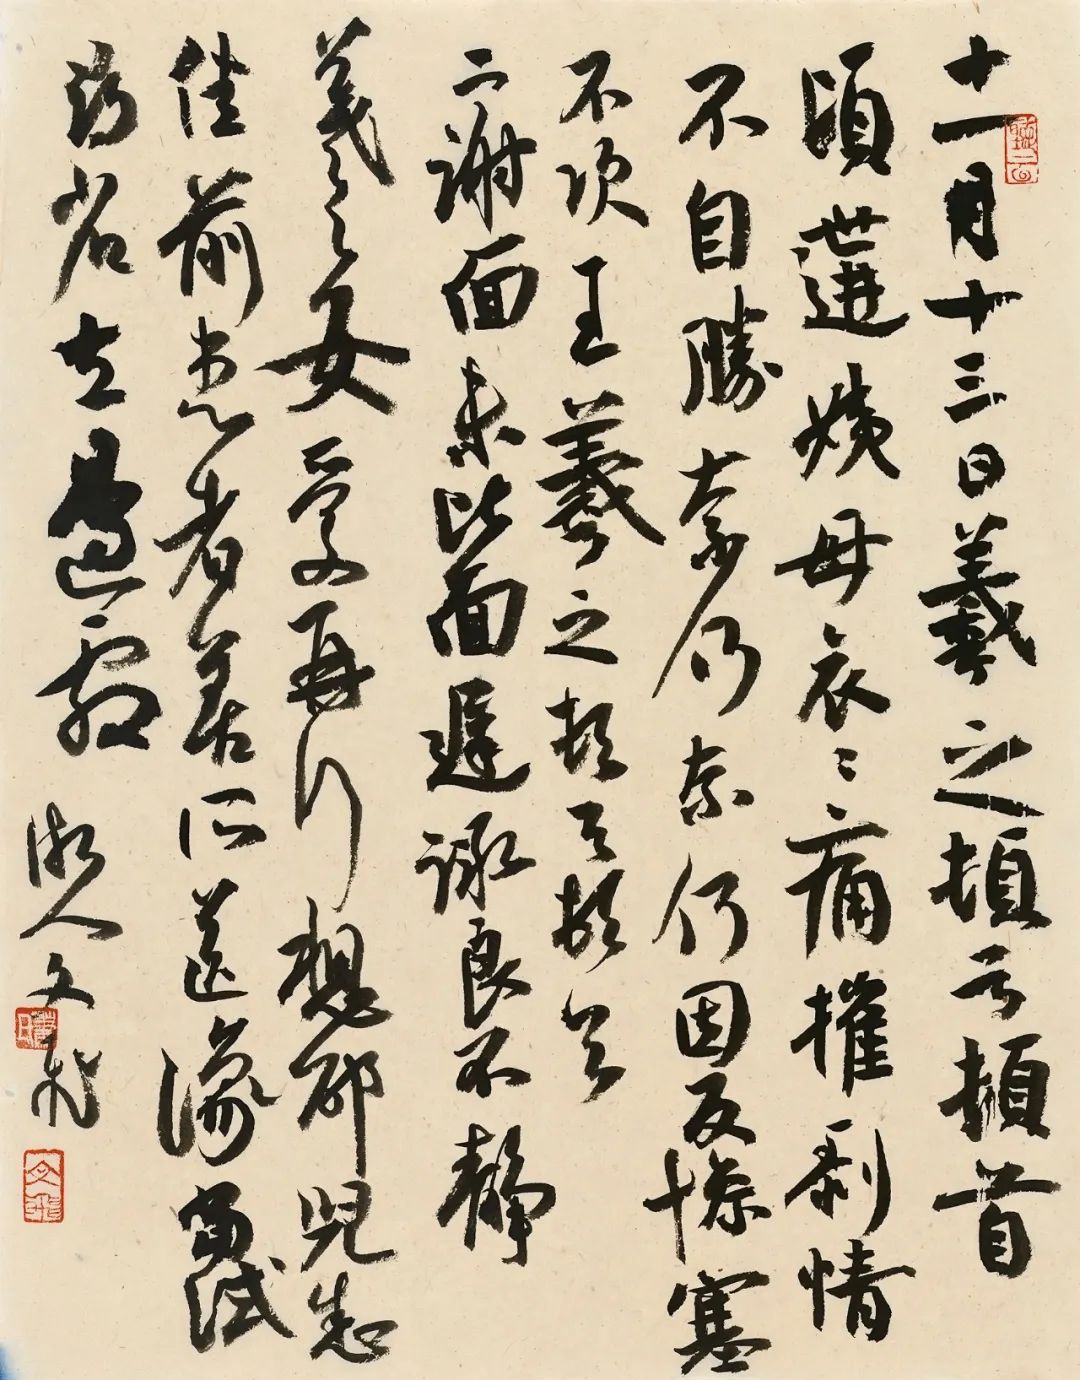 十一月十三日羲之頓首頓首
頃遘姨母哀哀痛摧剥情
不自勝奈何奈何因反慘塞
不次王羲之頓首頓首
二謝面未比面遲詠良不靜
羲之女愛再拜想邰兒悉
佳前患者善所送議當試
尋省左邊劇 湘人文飛
文飛